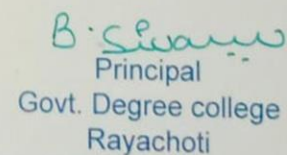 Principal
Govt. Degree college
Rayachoti